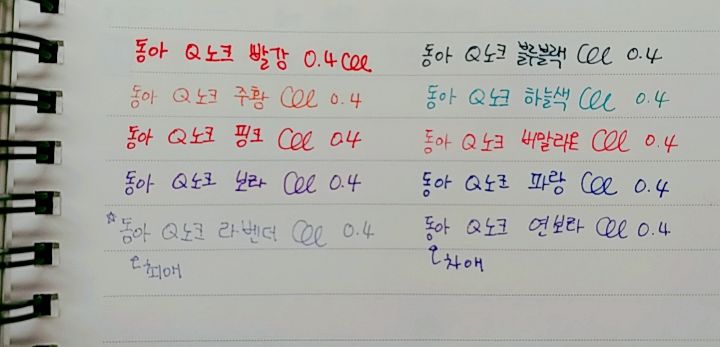 동아 Q노크 빨강 0.4 ᅟ
동아 Q노크 주황 0.4
동아 Q노크 핑크 0.4
동아 Q노크 보라 0.4
☆동아 Q노크 라벤더 0.4
최애
동아 Q노크 블루블랙 0.4
동아 Q노크 하늘색 0.4
동아 Q노크 버말리온 0.4
동아 Q노크 파랑 0.4
동아 Q노크 연보라 0.4
차애